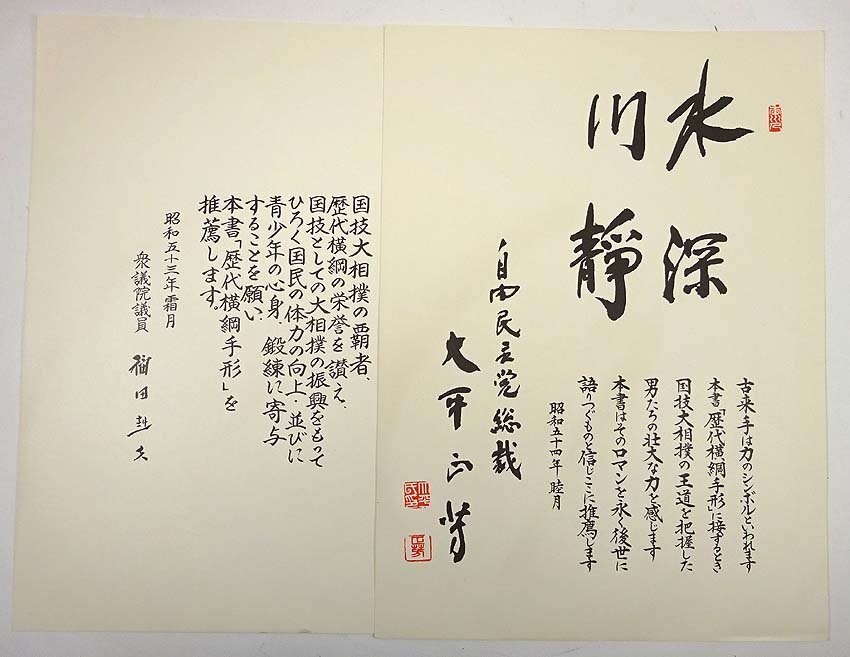 水深
川静
古来手は力のシンボルといわれます
本書「歴代横綱手形」に接するとき
国技大相撲の王道を把握した
男たちの壮大な力を感じます
本書はそのロマンを永く後世に
語りつぐものと信じここに推薦します
昭和五十四年 睦月
自由民主党総裁
大平正芳
国技大相撲の覇者、
歴代横綱の栄誉を讃え、
国技としての大相撲の振興をもって
ひろく国民の体力の向上・並びに
青少年の心身、鍛練に寄与
することを願い、
本書「歴代横綱手形」を
推薦します。
昭和五十三年霜月
衆議院議員 福田赳夫